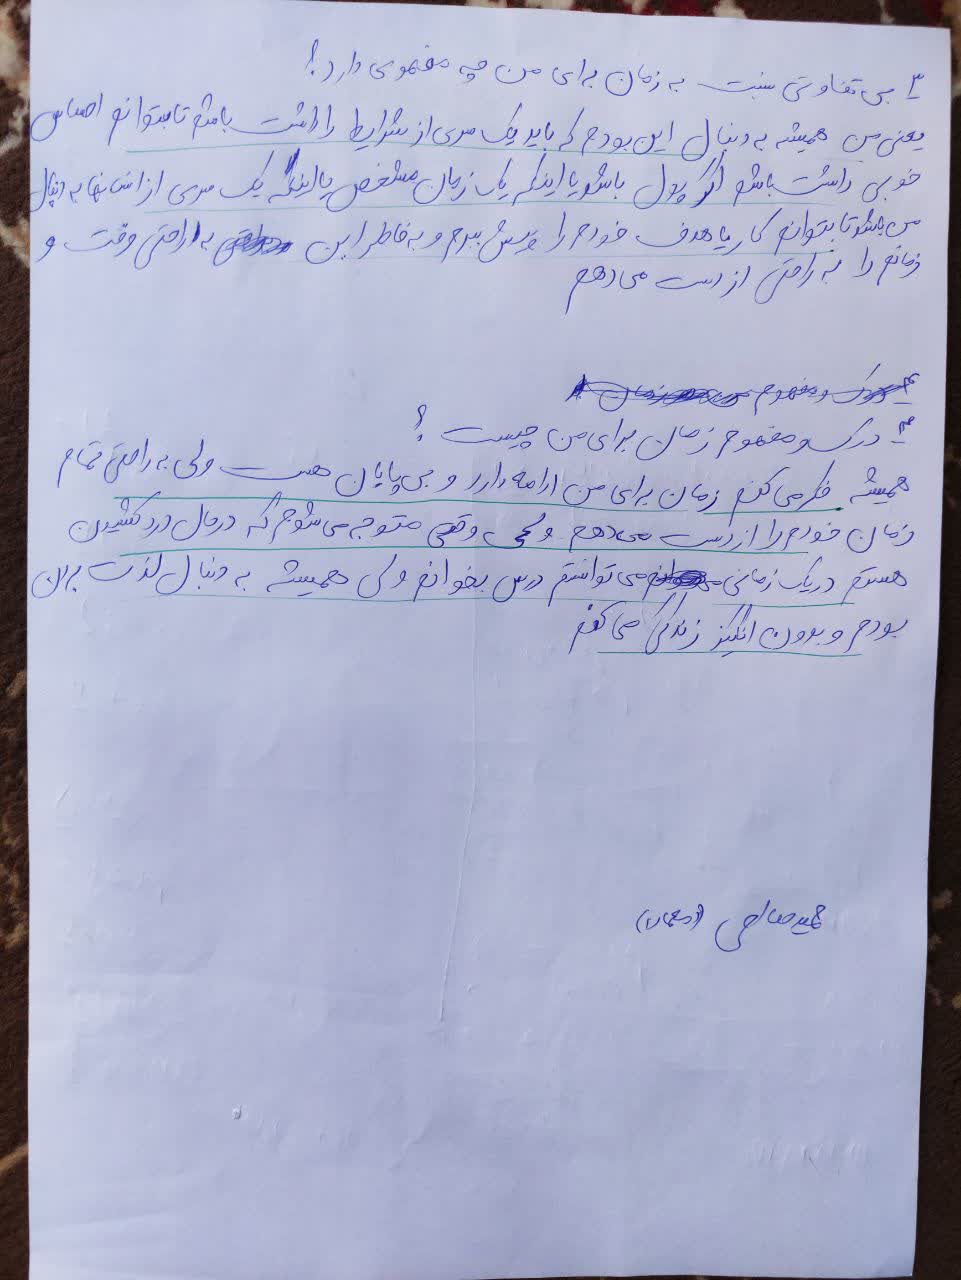 ۳ بی تفاوتی نسبت به زمان برای من چه مفهومی دارد؟
یعنی من همیشه به دنبال این بودم که باید یک سری از شرایط را داشت باشم تا بتوانم احساس
خوبی داشت باشم اگر پول باشد یا اینکه یک زمان مشخص یا اینکه یک سری از انسانها به دنبال
من باشد تا بتوانم کار یا هدف خودم را پیش ببرم و به خاطر این به راحتی وقت و
زمانم را به راحتی از دست می دهم
درک و مفهوم زمان
درک و مفهوم زمان برای من چیست ؟
همیشه فکر می کنم زمان برای من ادامه دارد و بی پایان هست ولی به راحتی تمام
زمان خودم را از دست می دهم و وقتی متوجه می شوم که درحال درد کشیدن
هستم در یک زمانی می توانستم درس بخوانم ولی همیشه به دنبال لذت بردن
بودم و بدون انگیز زندگی می کنم
صالحی